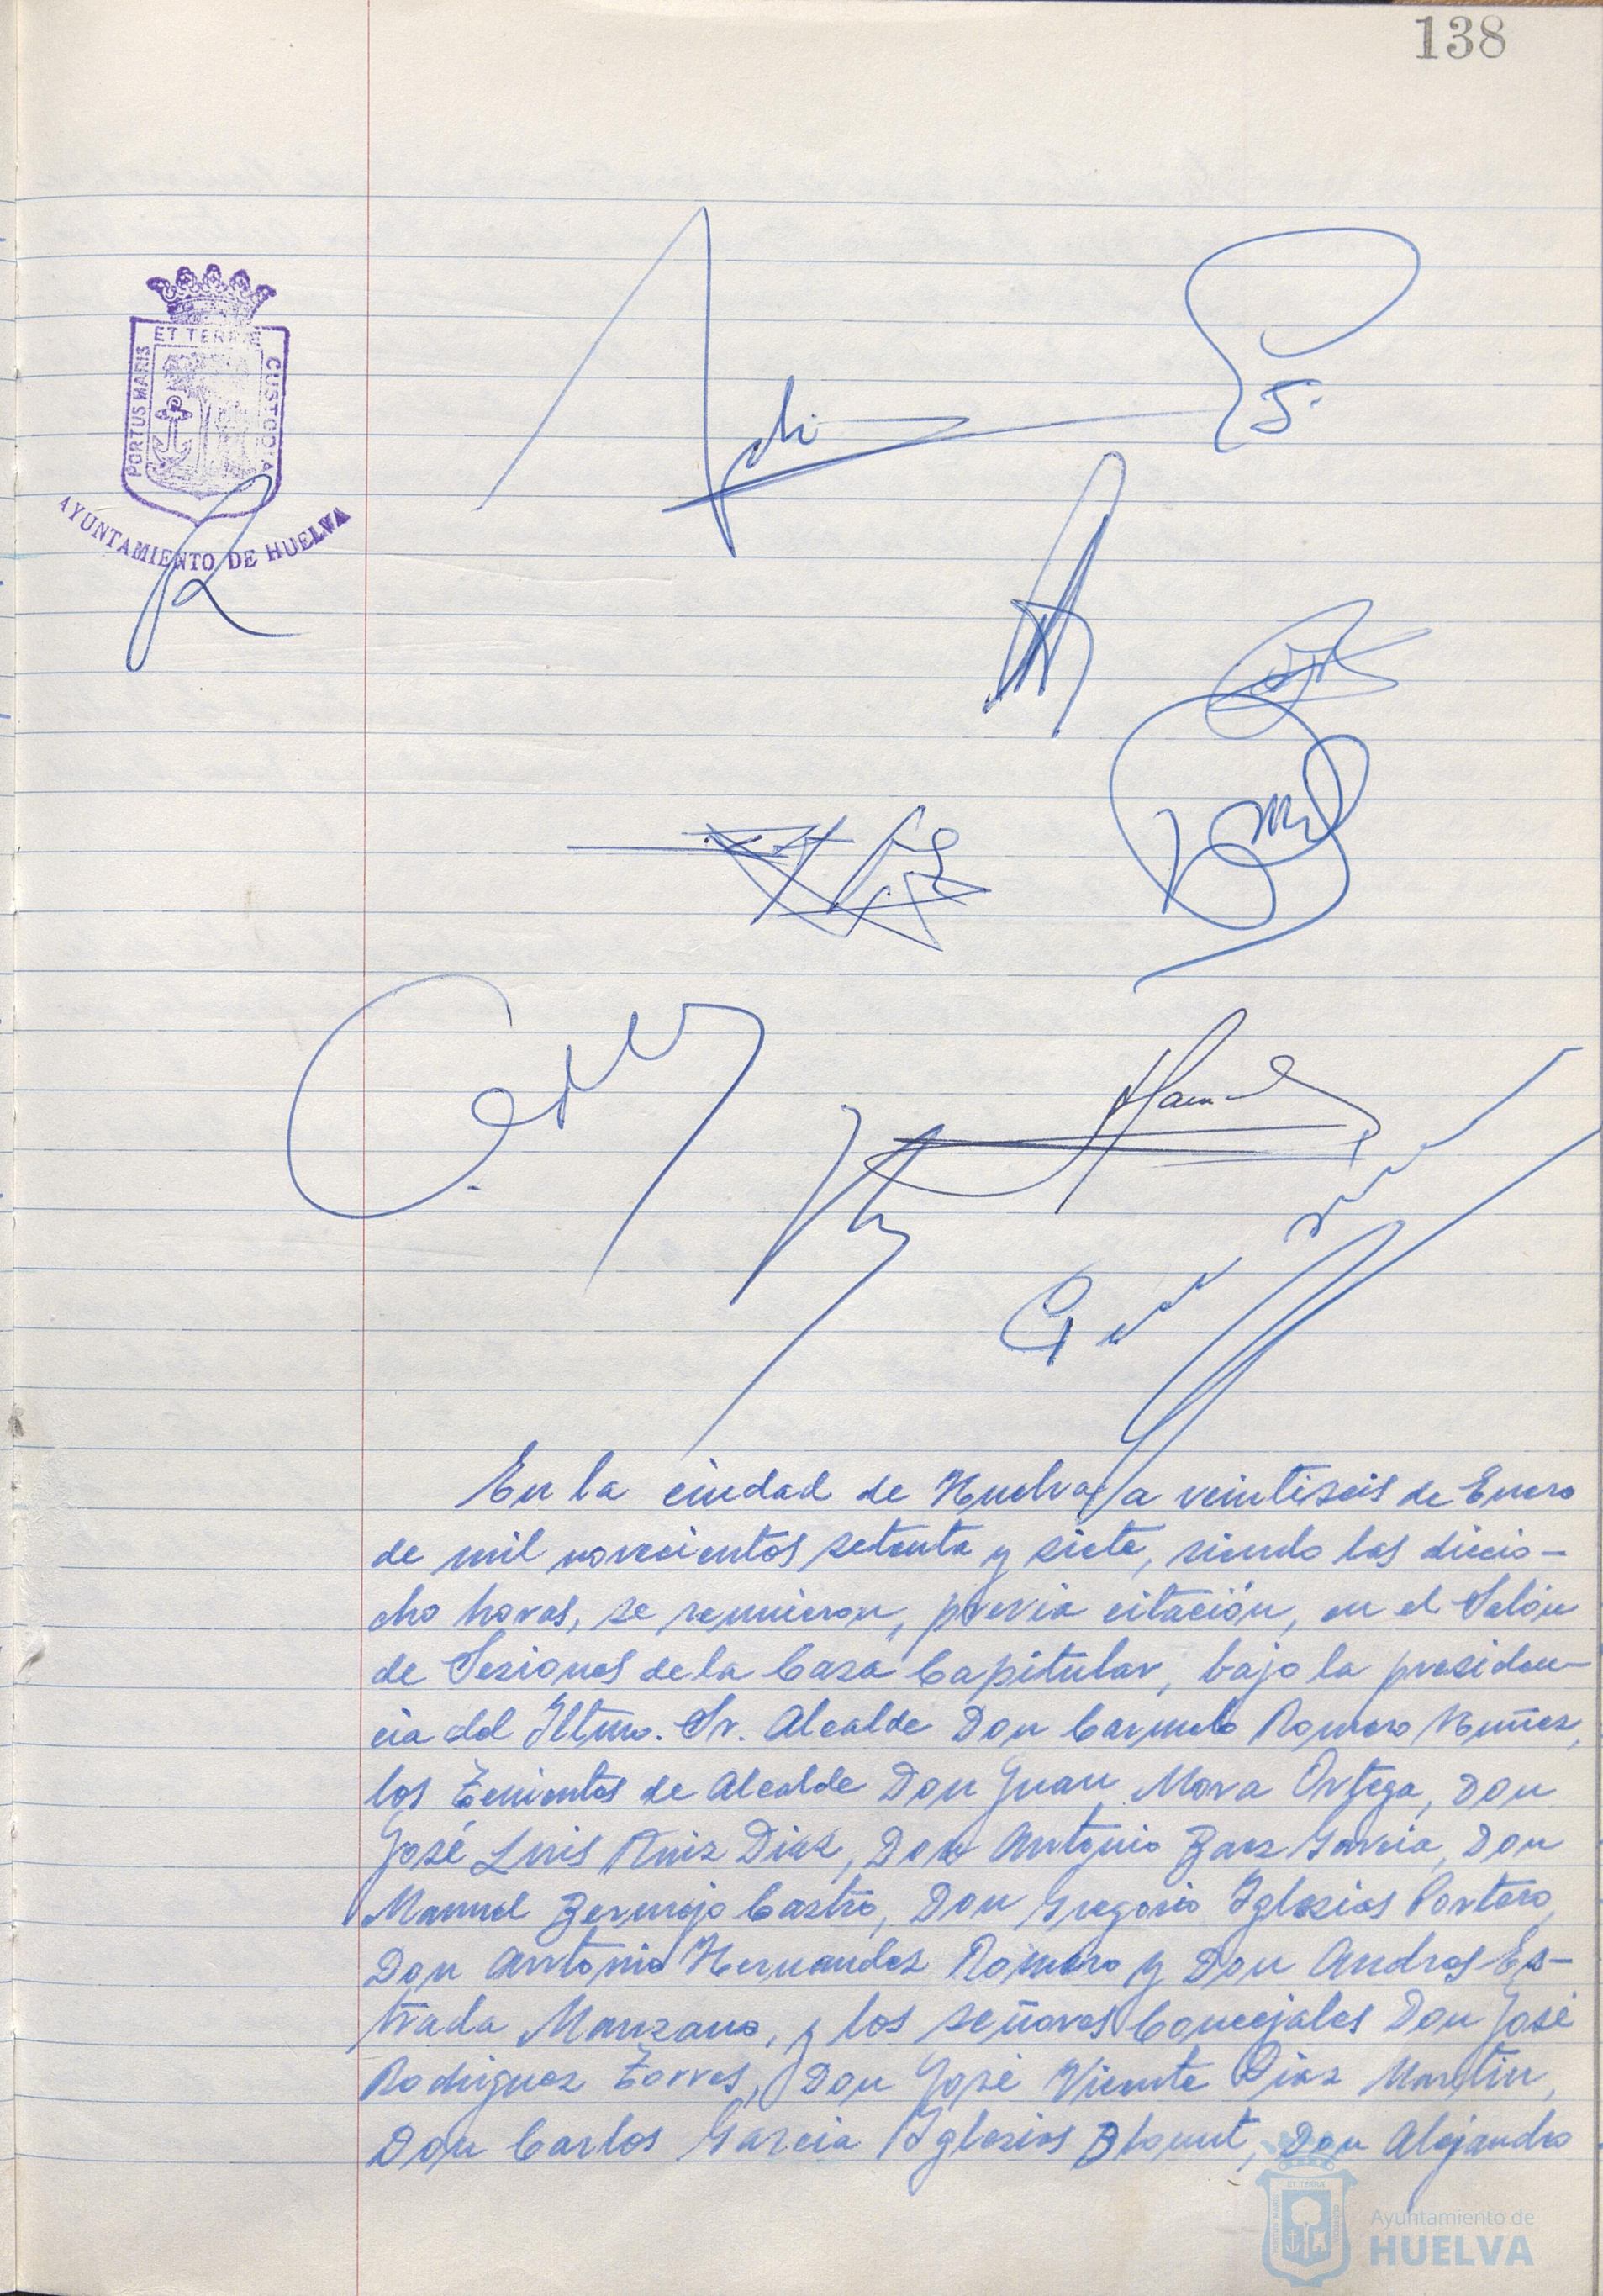 138
ET TERRÆ
PORTUS MARIS
CUSTODIA
AYUNTAMIENTO DE HUELVA
En la ciudad de Huelva, a veintiseis de Enero
de mil novecientos setenta y siete, siendo las diecio-
cho horas, se reunieron, previa citación, en el Salón
de Sesiones de la Casa Capitular, bajo la presiden-
cia del Iltmo. Sr. Alcalde Don Carmelo Romero Nuñez,
los Tenientes de Alcalde Don Juan Mora Ortega, Don
José Luis Ruiz Diaz, Don Antonio Baez Garcia, Don
Manuel Bermejo Castro, Don Gregorio Iglesias Portero,
Don Antonio Hernandez Romero y Don Andres Es-
trada Manzano, y los señores Concejales Don José
Rodriguez Torres, Don José Vicente Diaz Martin,
Don Carlos Garcia Iglesias Don Alejandro
Ayuntamiento de
HUELVA